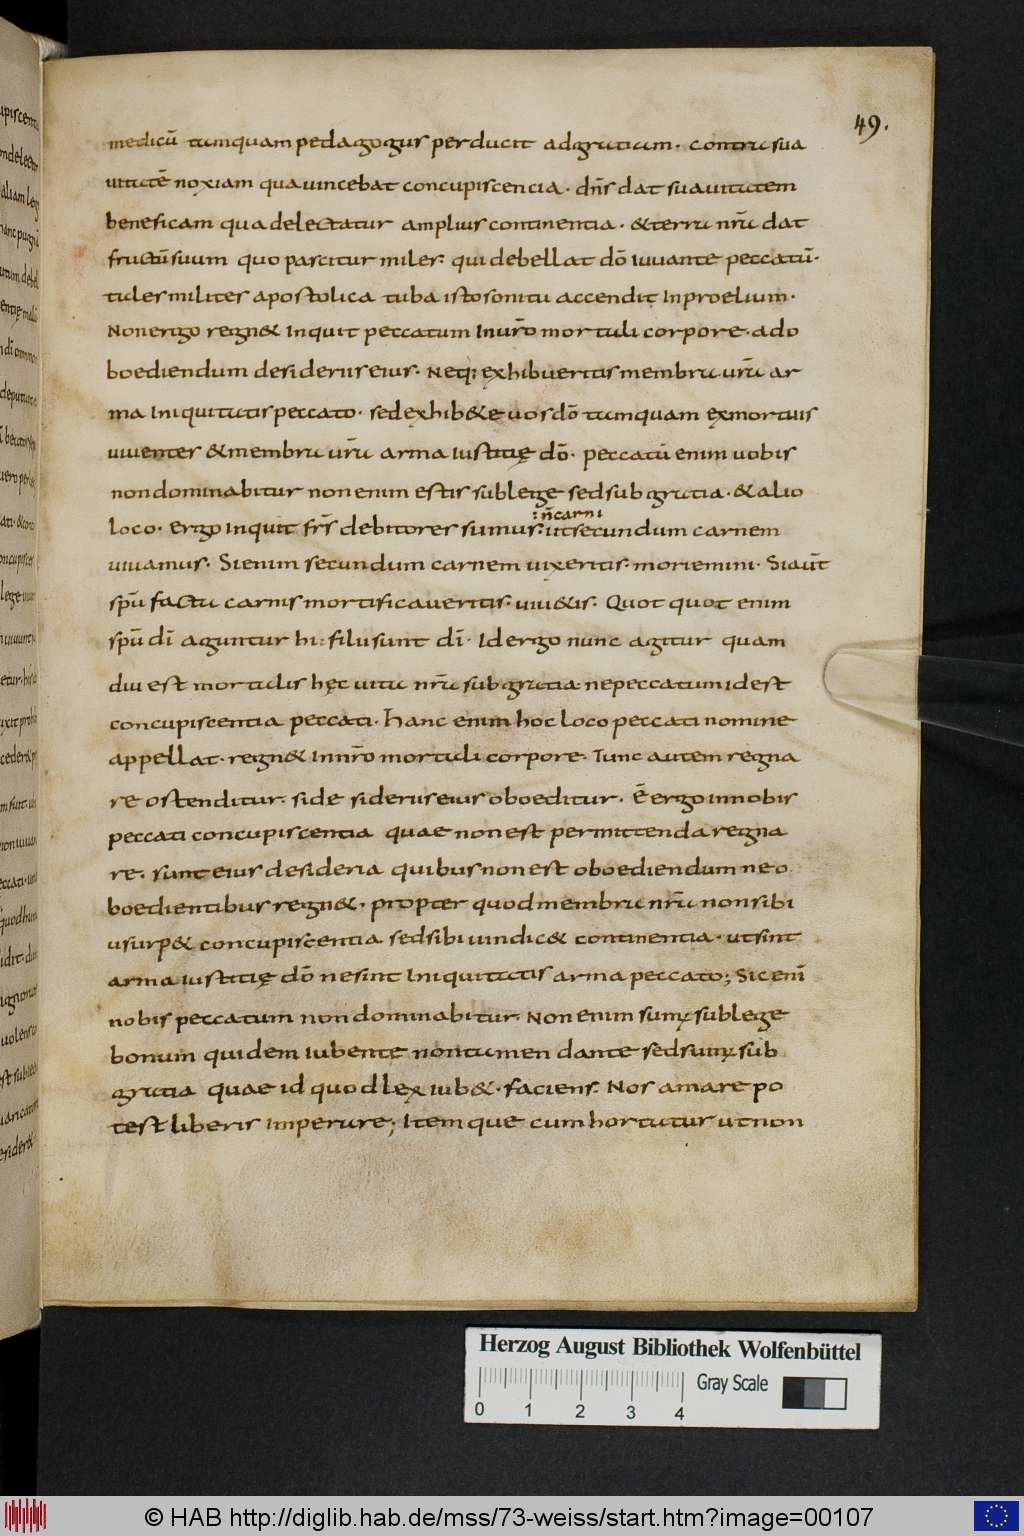 49.
medicū tamquam pedagogus perducit adgratiam. contra sua
uitatē noxiam qua uincebat concupiscencia. dn̄s dat suauitatem
beneficam qua delectatur amplius continentia. &terra nr̄a dat
fructū suum quo pascitur miles. qui debellat dō iuuante peccatū.
tales milites apostolica tuba isto sonitu accendit Inproelium.
Non ergo regn& Inquit peccatum Inur̄o mortali corpore. ad o
boediendum desideriis eius. Neq; exhibueritis membra ur̄a ar
ma Iniquitatis peccato. sed exhib&e uos dō tamquam ex mortuis
uiuentes &membra ur̄a arma iustitię dō. peccatū enim uobis
non dominabitur non enim estis sub lege sed sub gratia. &alio
loco. Ergo Inquit fr̄s debitores sumus : ut secundum carnem
: n̄ carni
uiuamus. Si enim secundum carnem uixeritis. moriemini. Si aut̄
sp̄u facta carnis mortificaueritis. uiu&is. Quot quot enim
sp̄u dī aguntur hi: filii sunt dī. Id ergo nunc agitur quam
diu est mortalis hęc uita nr̄a sub gratia. ne peccatum id est
concupiscentia peccati. Hanc enim hoc loco peccati nomine
appellat. regn& Innr̄o mortali corpore. Tunc autem regna
re ostenditur. si de sideriis eius oboeditur. Ē ergo in nobis
peccati concupiscentia quae non est permittenda regna
re. sunt eius desideria quibus non est oboediendum ne o
boedientibus regn&. propter quod membra nr̄a non sibi
usurp& concupiscentia sed sibi uindic& continentia. ut sint
arma iustitię dō ne sint Iniquitatis arma peccato; Sic enī
nobis peccatum non dominabitur. Non enim sumꝰ sub lege
bonum quidem iubente non tamen dante sed sumꝰ sub
gratia quae id quod lex iub&. faciens. Nos amare po
test liberis Imperare; Itemque cum hortatur ut non
Herzog August Bibliothek Wolfenbüttel
Gray Scale
0 1 2 3 4
© HAB http://diglib.hab.de/mss/73-weiss/start.htm?image=00107